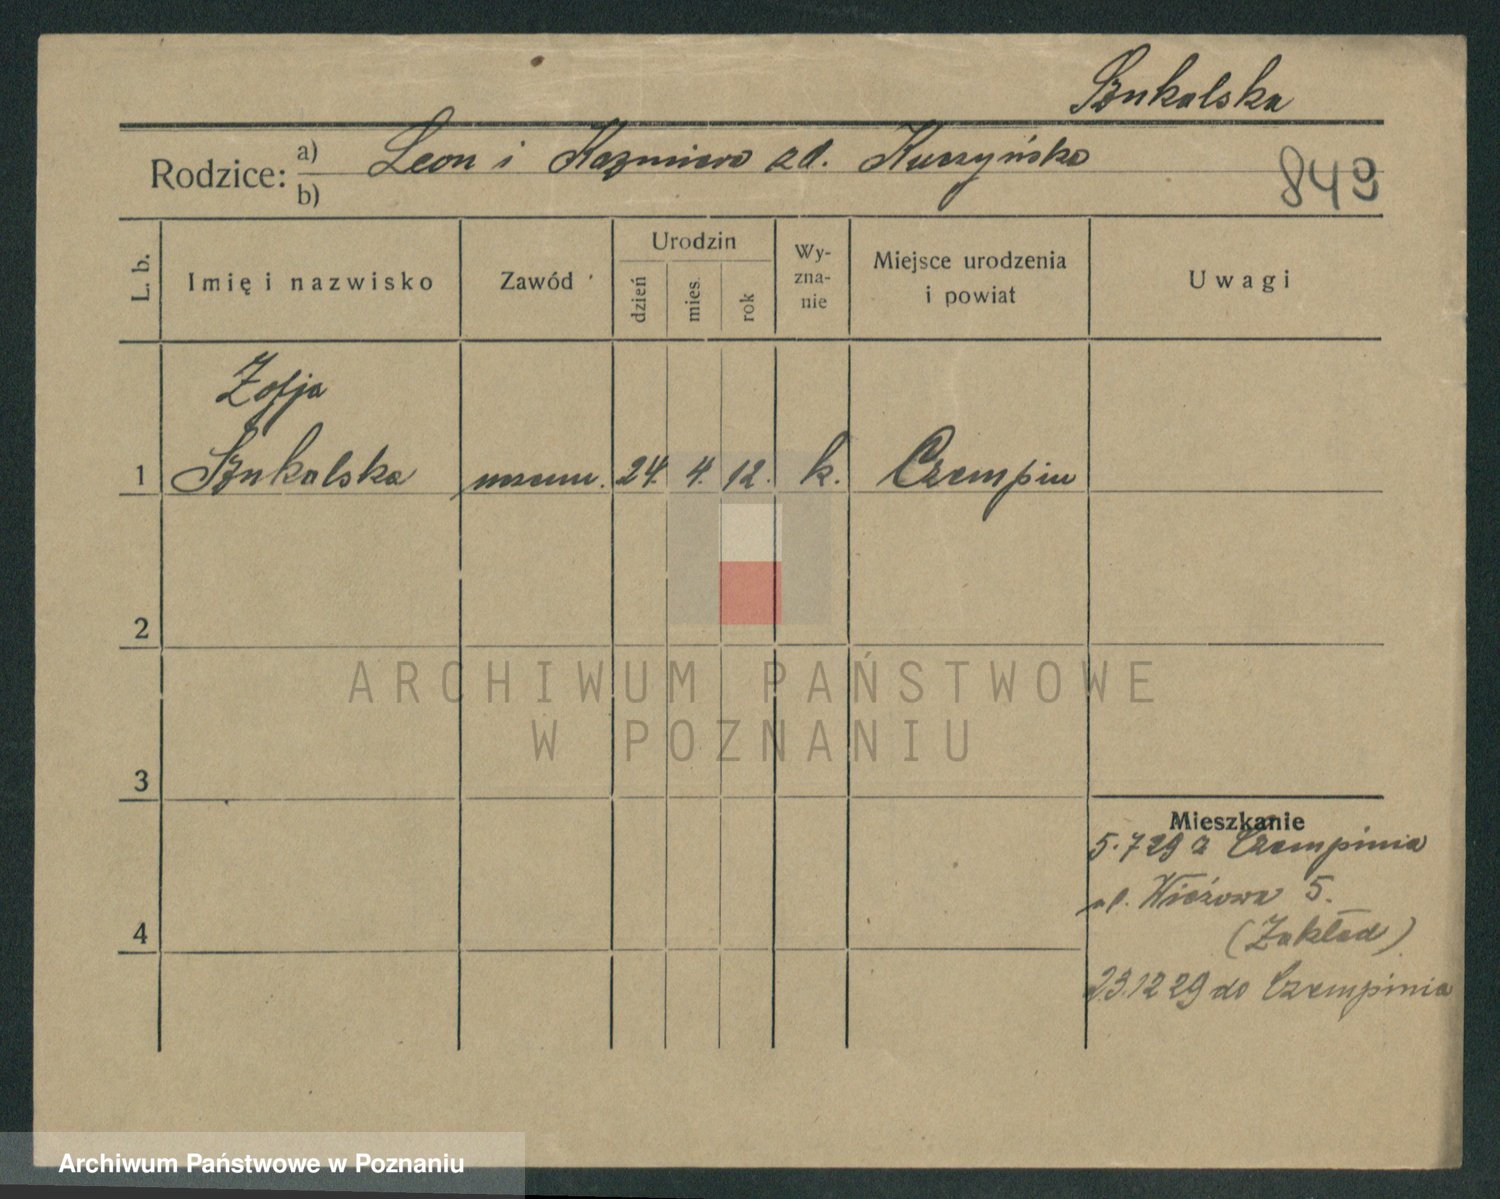 Szukalska
Rodzice: a) Leon i Kazmiera zd. Kuszyńska
b)
849
L. b.
Imię i nazwisko
Zawód
Urodzin
dzień
mies.
rok
Wy-
zna-
nie
Miejsce urodzenia
i powiat
Uwagi
Zofja
1 Szukalska uczenn. 24. 4. 12. k. Czempiń
2
ARCHIWUM PAŃSTWOWE
W POZNANIU
3
Mieszkanie
5.7 29 z Czempinia
ul. Wieżowa 5.
(Zakład)
4
23.12 29 do Czempinia
Archiwum Państwowe w Poznaniu